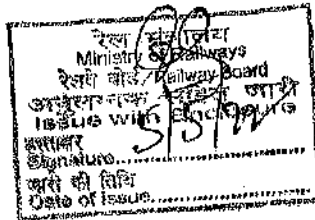 रेल मंत्रालय
Ministry of Railways
रेलवे बोर्ड/Railway Board
जारी
Issue with Enclosure
हस्ताक्षर
Signature
जारी की तिथि
Date of Issue